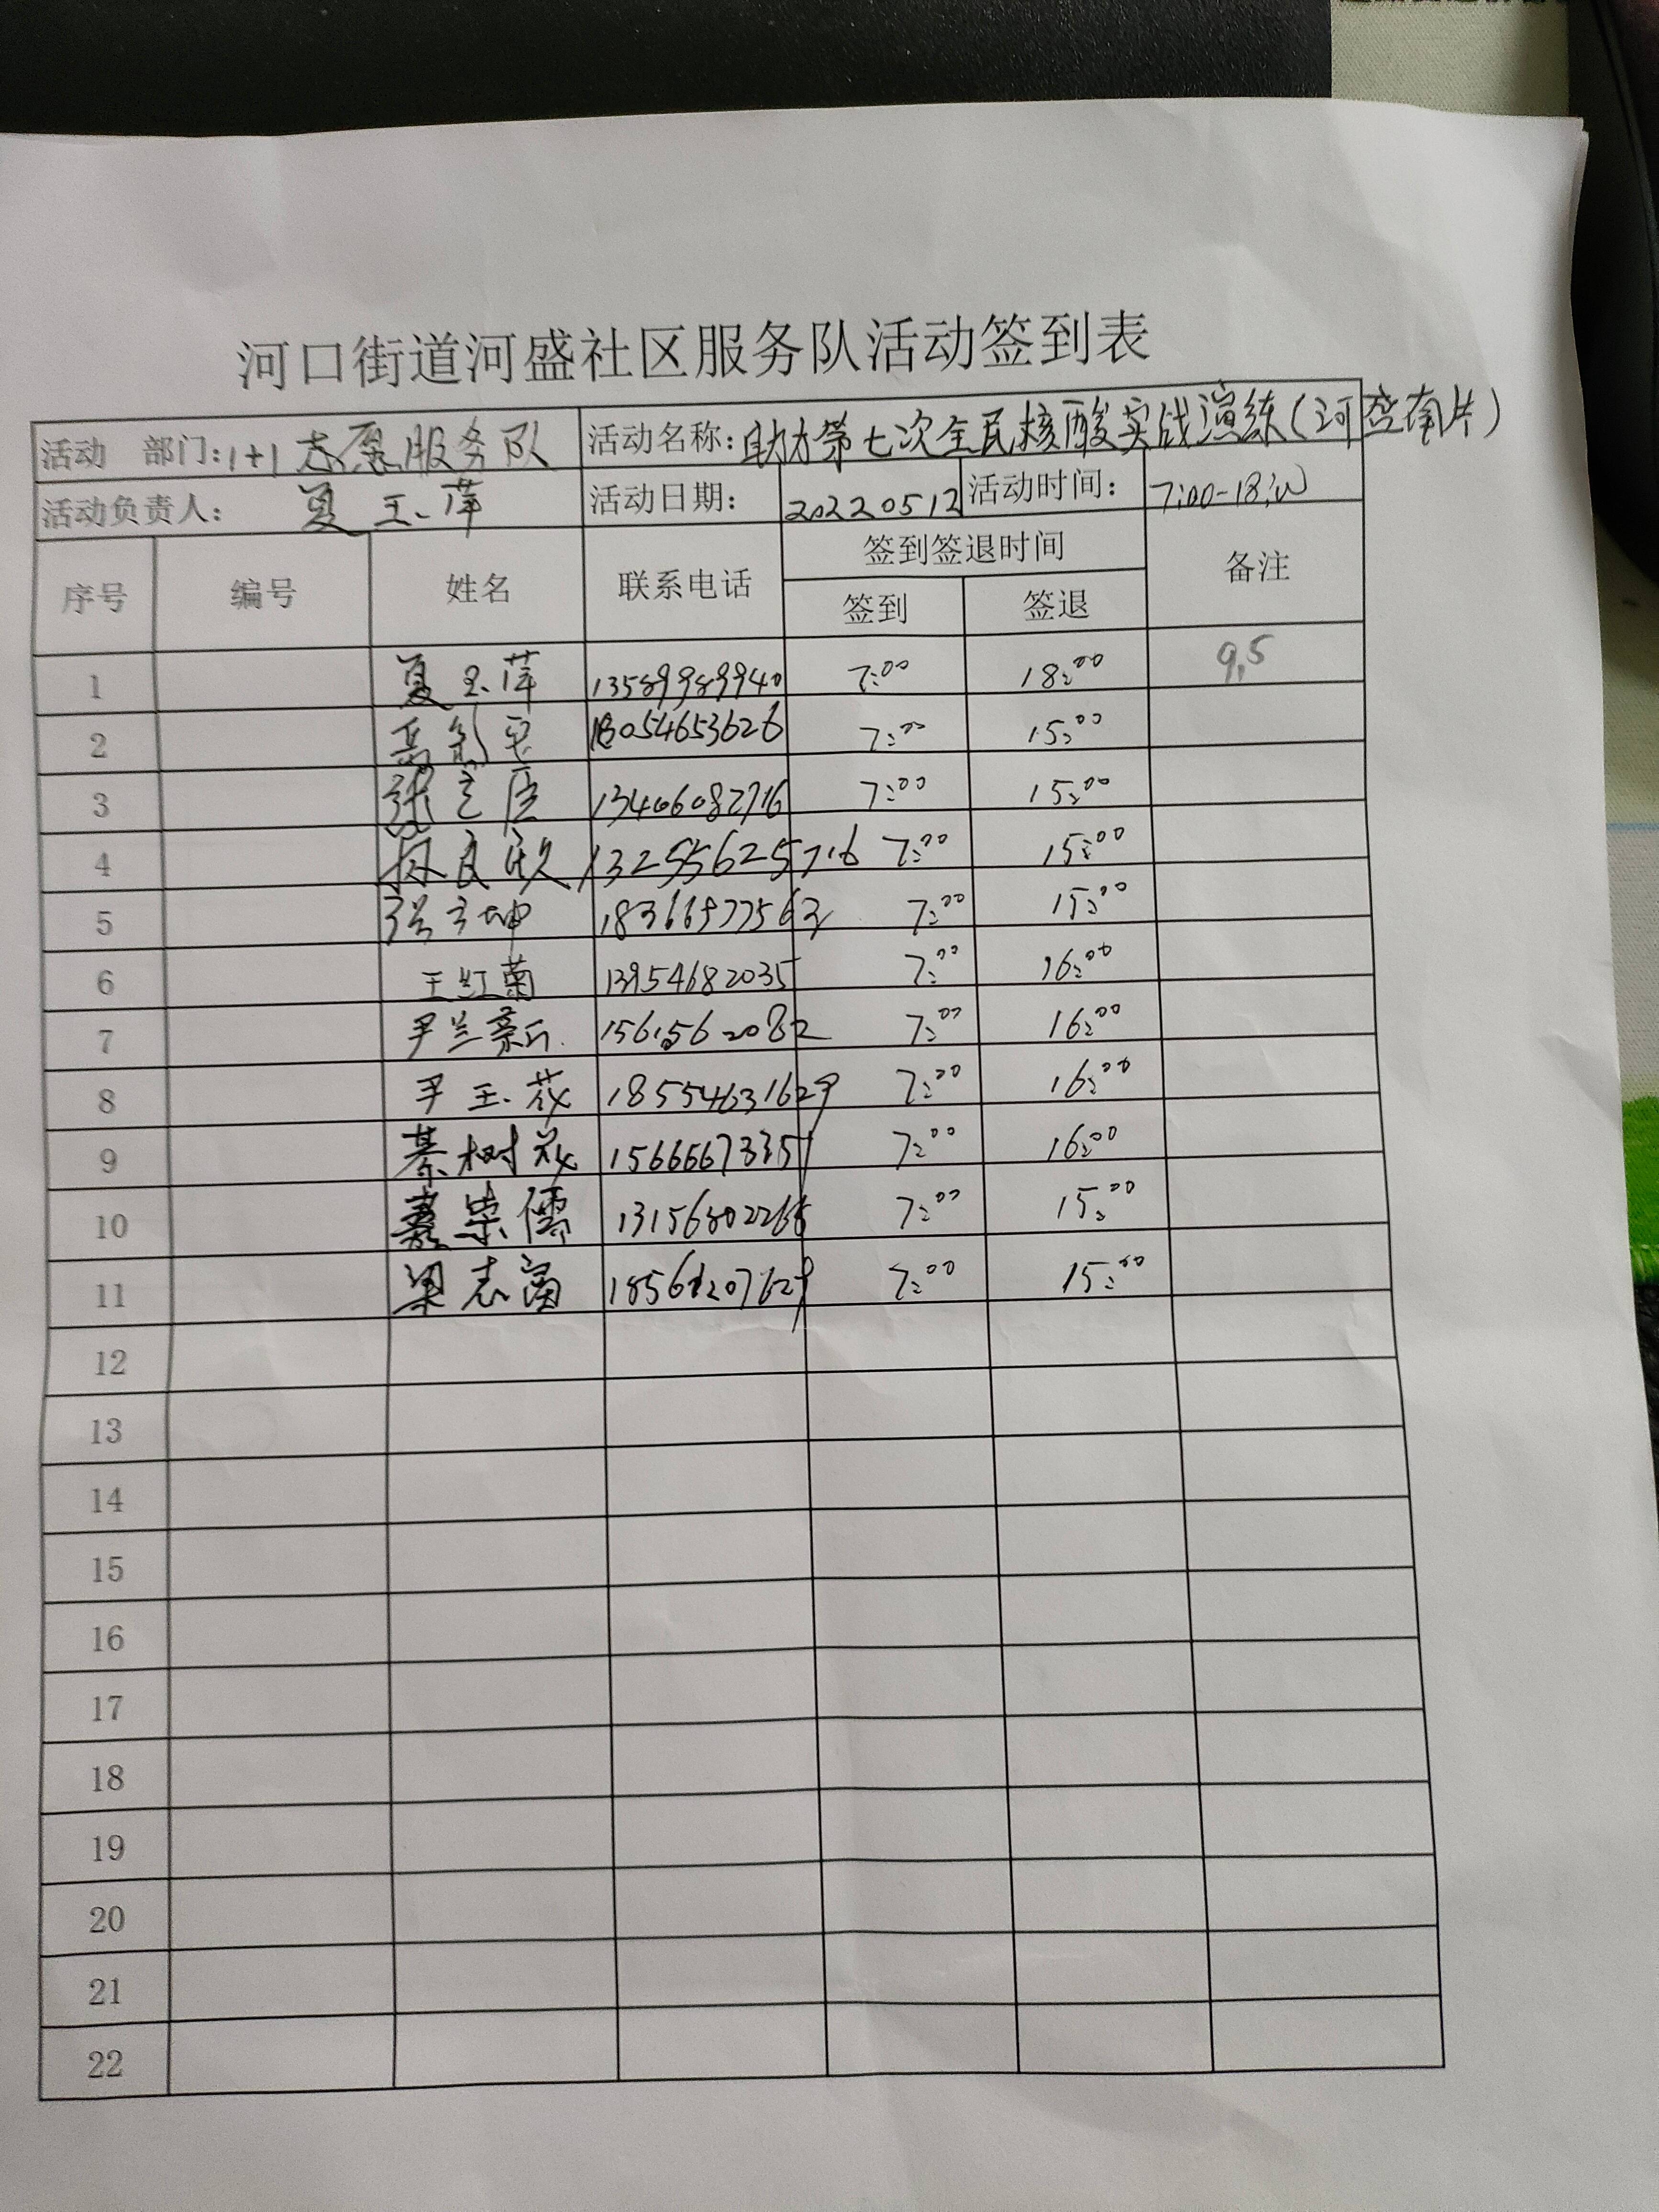 河口街道河盛社区服务队活动签到表
活动 部门:1+1志愿服务队 活动名称:助力第七次全民核酸实战演练(河盛南片)
活动负责人: 夏玉萍 活动日期: 20220512 活动时间: 7:00-18:00
序号 编号 姓名 联系电话 签到签退时间 备注
签到 签退
1 夏玉萍 13589989940 7:00 18:00 9,5
2 18054653626 7:00 15:00
3 13406082716 7:00 15:00
4 13255625716 7:00 15:00
5 7:00 15:00
6 王红菊 13954682035 7:00 16:00
7 尹兰 7:00 16:00
8 尹玉花 18554631629 7:00 16:00
9 綦树花 7:00 16:00
10 荣儒 7:00 15:00
11 梁志富 7:00 15:00
12
13
14
15
16
17
18
19
20
21
22